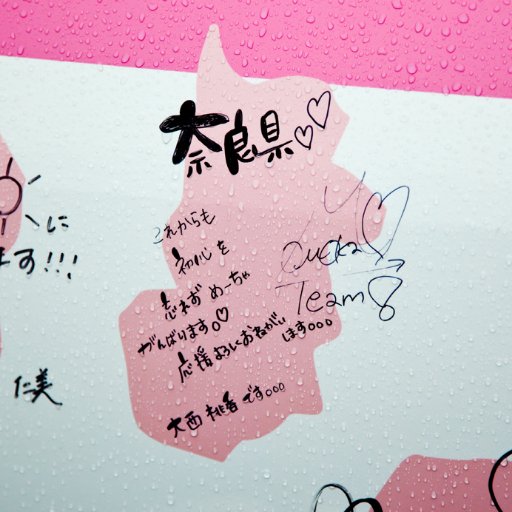 奈良県♡♡
これからも
初心を
忘れず めーちゃ
がんばります。♡
応援よろしくおねがい
します。。。
大西 桃香 です。。。
Team 8
に
ます!!!
仁美